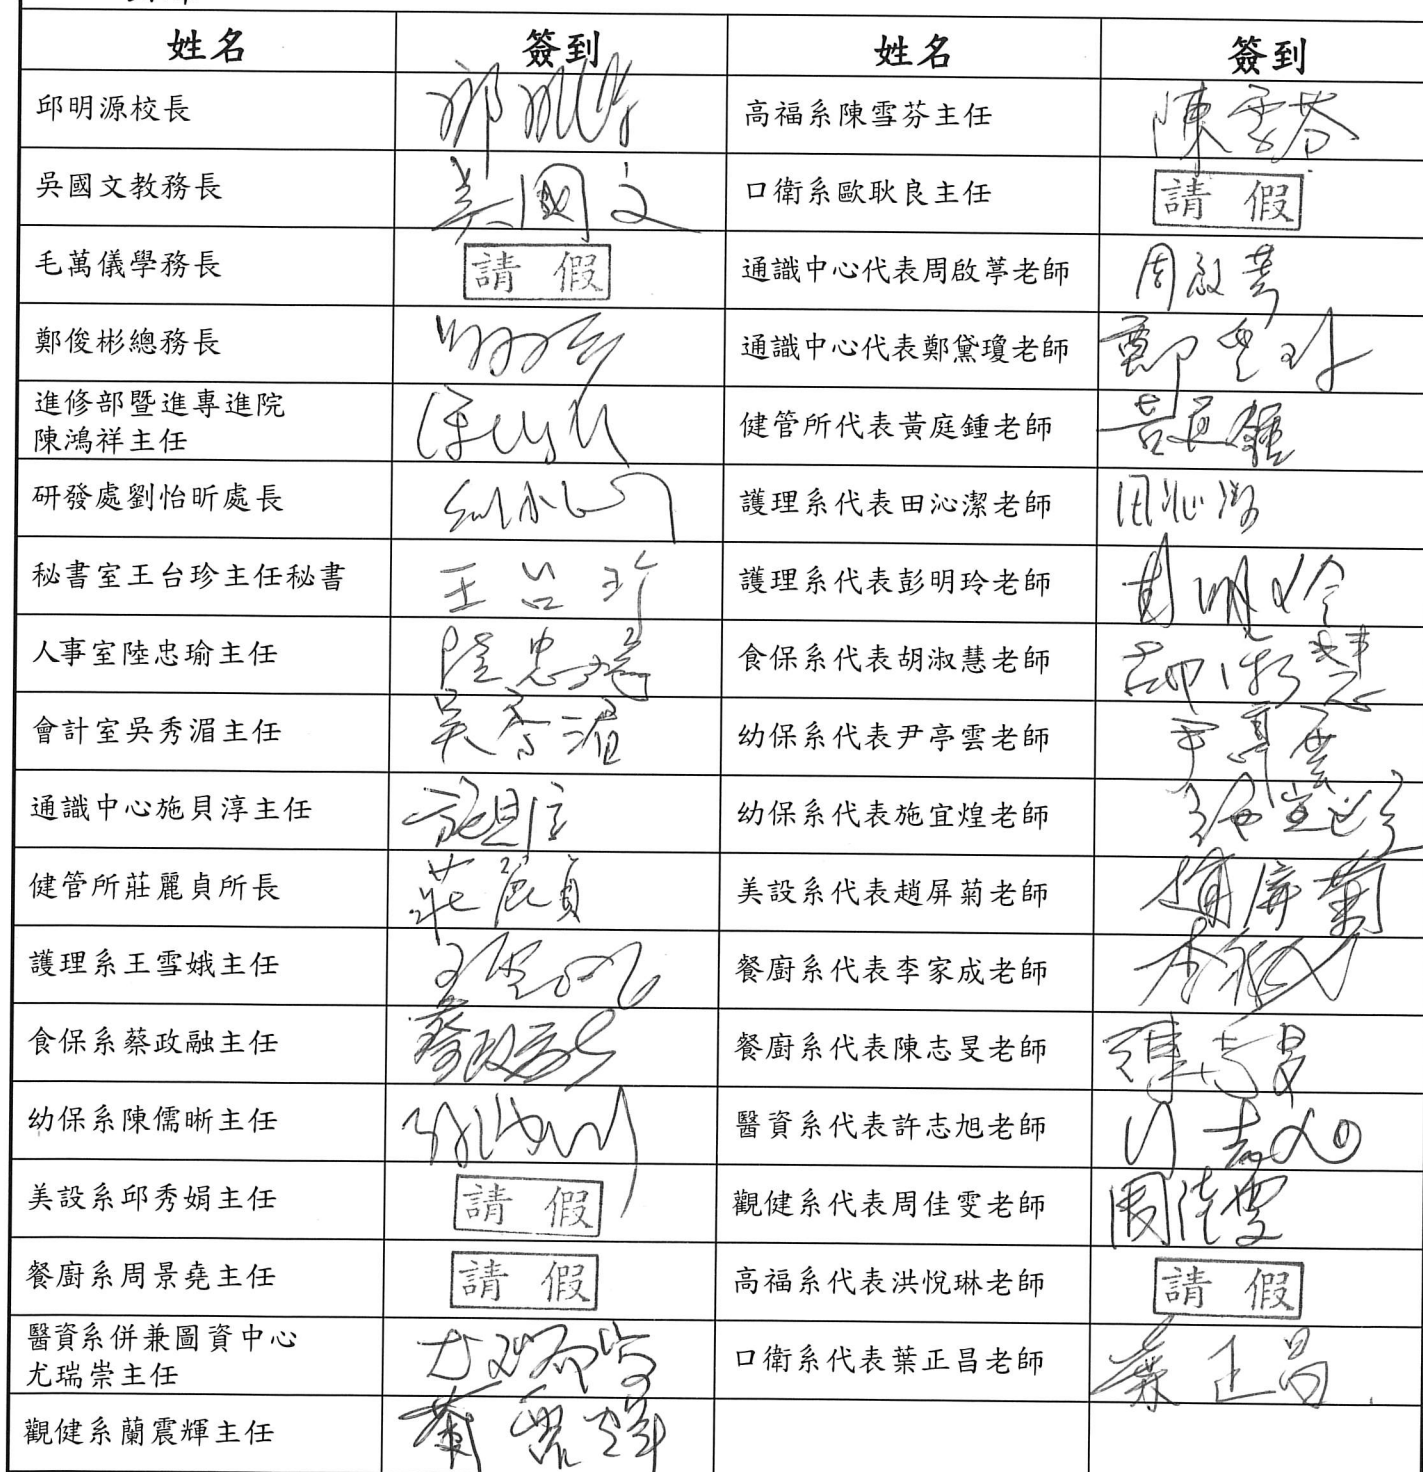 姓名 簽到 姓名 簽到
邱明源校長 高福系陳雪芬主任 陳雪芬
吳國文教務長 吳國文 口衛系歐耿良主任 請 假
毛萬儀學務長 請 假 通識中心代表周啟葶老師 周啟葶
鄭俊彬總務長 通識中心代表鄭黛瓊老師
進修部暨進專進院
陳鴻祥主任 健管所代表黃庭鍾老師 黃庭鍾
研發處劉怡昕處長 護理系代表田沁潔老師 田沁潔
秘書室王台珍主任秘書 王台珍 護理系代表彭明玲老師 彭明玲
人事室陸忠瑜主任 陸忠瑜 食保系代表胡淑慧老師 胡淑慧
會計室吳秀湄主任 吳秀湄 幼保系代表尹亭雲老師 尹亭雲
通識中心施貝淳主任 施貝淳 幼保系代表施宜煌老師 施宜煌
健管所莊麗貞所長 莊麗貞 美設系代表趙屏菊老師 趙屏菊
護理系王雪娥主任 王雪娥 餐廚系代表李家成老師 李家成
食保系蔡政融主任 蔡政融 餐廚系代表陳志旻老師 陳志旻
幼保系陳儒晰主任 醫資系代表許志旭老師 許志旭
美設系邱秀娟主任 請 假 觀健系代表周佳雯老師 周佳雯
餐廚系周景堯主任 請 假 高福系代表洪悅琳老師 請 假
醫資系併兼圖資中心
尤瑞崇主任 尤瑞崇 口衛系代表葉正昌老師 葉正昌
觀健系蘭震輝主任 蘭震輝